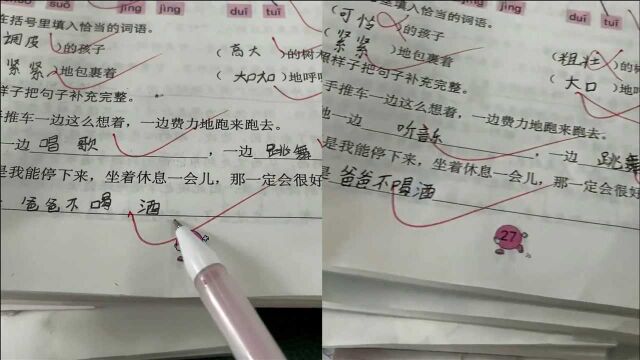 zhuō suō jīng jìng duī tuī
在括号里填入恰当的词语。
(调皮)的孩子 (高大)的树木
(紧紧)地包裹着 (大口大口)地呼吸
样子把句子补充完整。
手推车一边这么想着，一边费力地跑来跑去。
一边 唱歌 ，一边 跳舞
是我能停下来，坐着休息一会儿，那一定会很好
爸爸不喝酒
jìng jìng duī tuī
里填入恰当的词语。
(可怕)的孩子
(紧紧)地包裹着 (粗壮)的树
(大口)地
照样子把句子补充完整。
手推车一边这么想着，一边费力地跑来跑去。
一边 听音乐 ，一边 跳舞
是我能停下来，坐着休息一会儿，那一定会很好
爸爸不喝酒
27